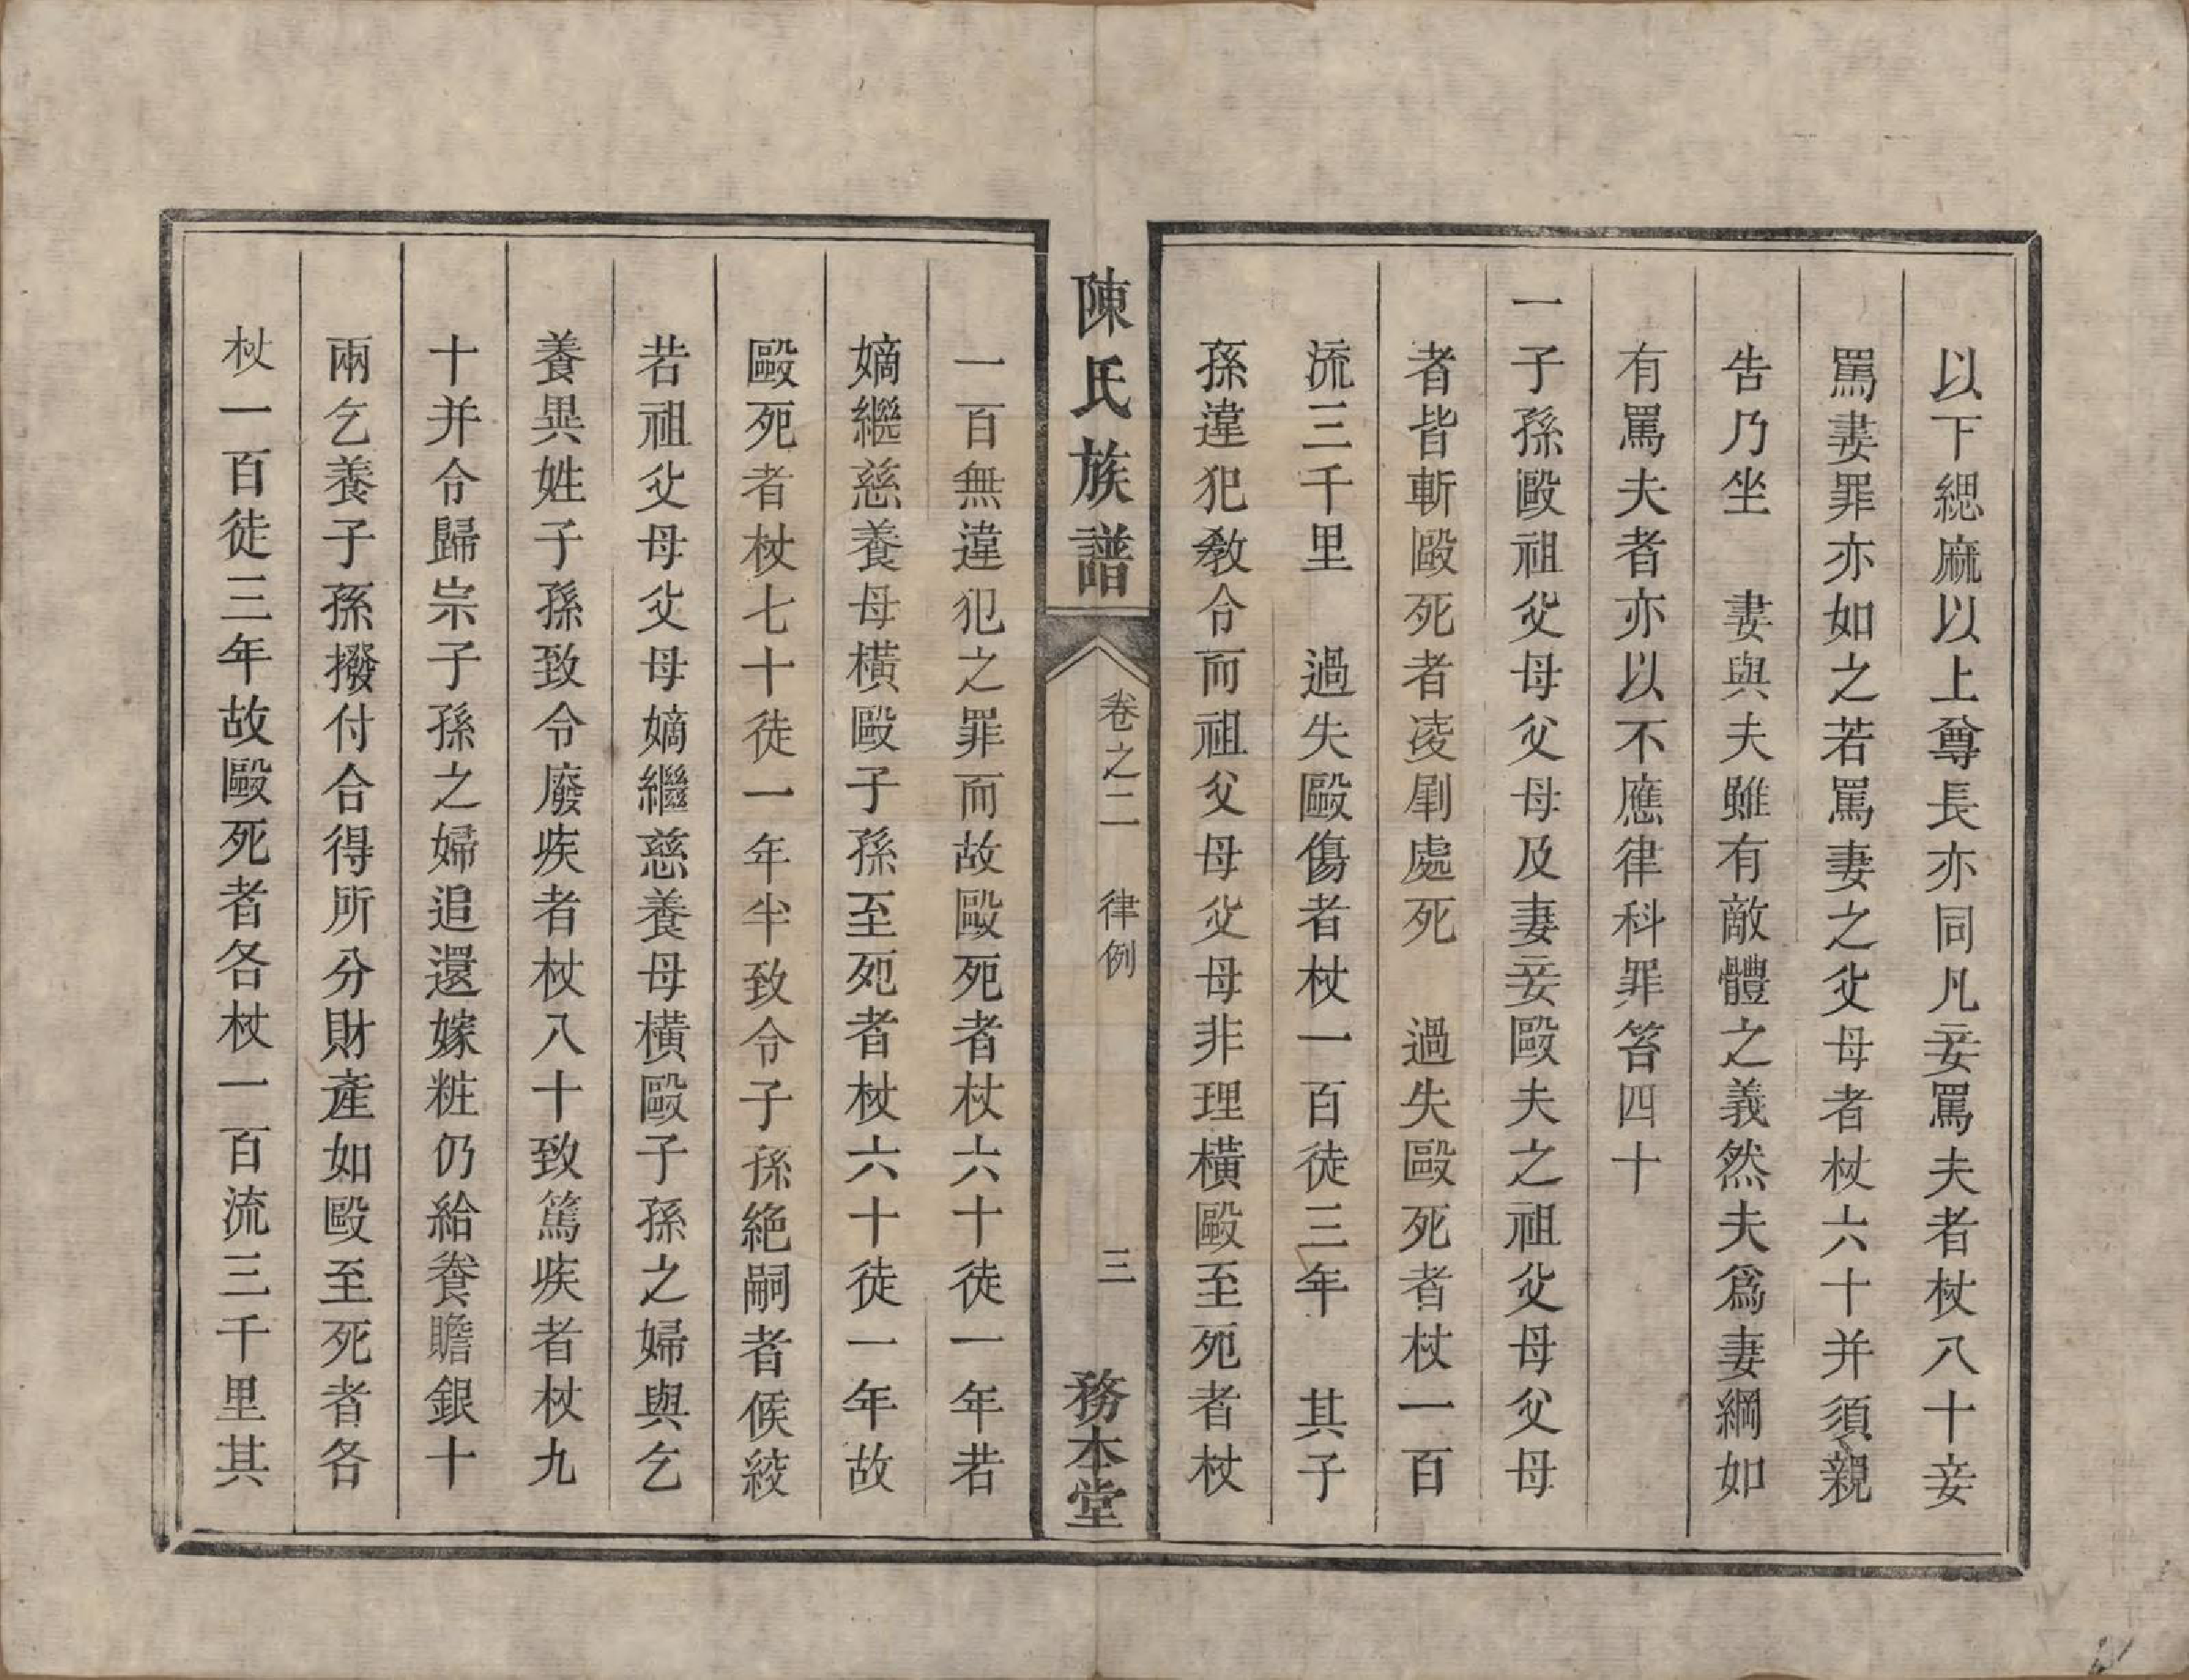 以下緦麻以上尊長亦同凡妾罵夫者杖八十妾
罵妻罪亦如之若罵妻之父母者杖六十并須親
告乃坐　妻與夫雖有敵體之義然夫爲妻綱如
有罵夫者亦以不應律科罪笞四十
一子孫毆祖父母父母及妻妾毆夫之祖父母父母
者皆斬毆死者凌剮處死　過失毆死者杖一百
流三千里　過失毆傷者杖一百徒三年　其子
孫違犯教令而祖父母父母非理橫毆至死者杖
陳氏族譜　卷之二　律例　三　務本堂
一百無違犯之罪而故毆死者杖六十徒一年若
嫡繼慈養母橫毆子孫至死者杖六十徒一年故
毆死者杖七十徒一年半致令子孫絕嗣者候絞
若祖父母父母嫡繼慈養母橫毆子孫之婦與乞
養異姓子孫致令廢疾者杖八十致篤疾者杖九
十并令歸宗子孫之婦追還嫁粧仍給養贍銀十
兩乞養子孫撥付合得所分財產如毆至死者各
杖一百徒三年故毆死者各杖一百流三千里其